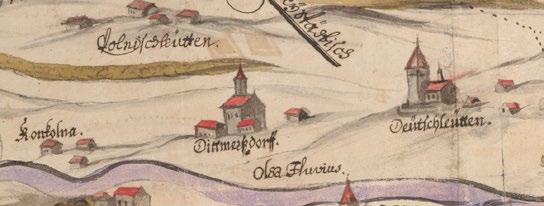 Polnischleütten.
Konkolna.
Dittmerßdorff.
Deütschleütten.
Olsa Fluvius.